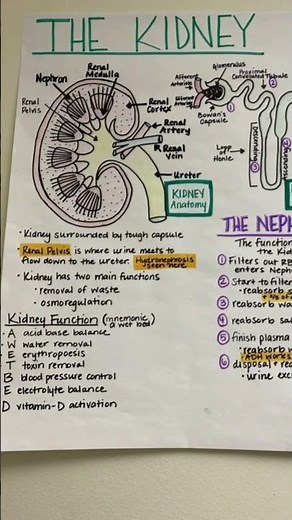 THE KIDNEY
Nephron
Renal
Medulla
Renal
Pelvis
Renal
Cortex
Renal
Artery
Renal
Vein
Ureter
KIDNEY
Anatomy
Glomerulus
Proximal
Convoluted Tubule
Afferent
Arteriole
Arteriole
Bowan's
Capsule
Loop
of
Henle
descending
ascending
1
2
3
• Kidney surrounded by tough capsule
• Renal Pelvis is where urine meets to
flow down to the ureter. Hydronephrosis
seen here
• Kidney has two main functions
• removal of waste
• osmoregulation
Kidney Function (mnemonic
a wet bed)
• A acid base balance
• W water removal
• E erythropoesis
• T toxin removal
B blood pressure control
• E electrolyte balance
D vitamin-D activation
THE NEPH
The function
the Kid
1 Filters out RB
enters Neph
2 Start to filter
• reabsorb s
3 reabsorb wa
4 reabsorb sa
5 finish plasma
• reabsorb w
• ADH works
6 disposal + rea
• urine exc